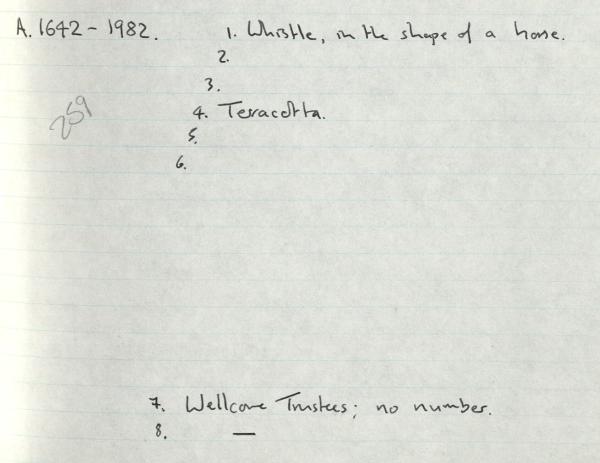 A. 1642 - 1982. 1. Whistle, in the shape of a horse.
2.
3.
259
4. Terracotta.
5.
6.
7. Wellcome Trustees; no number.
8. —